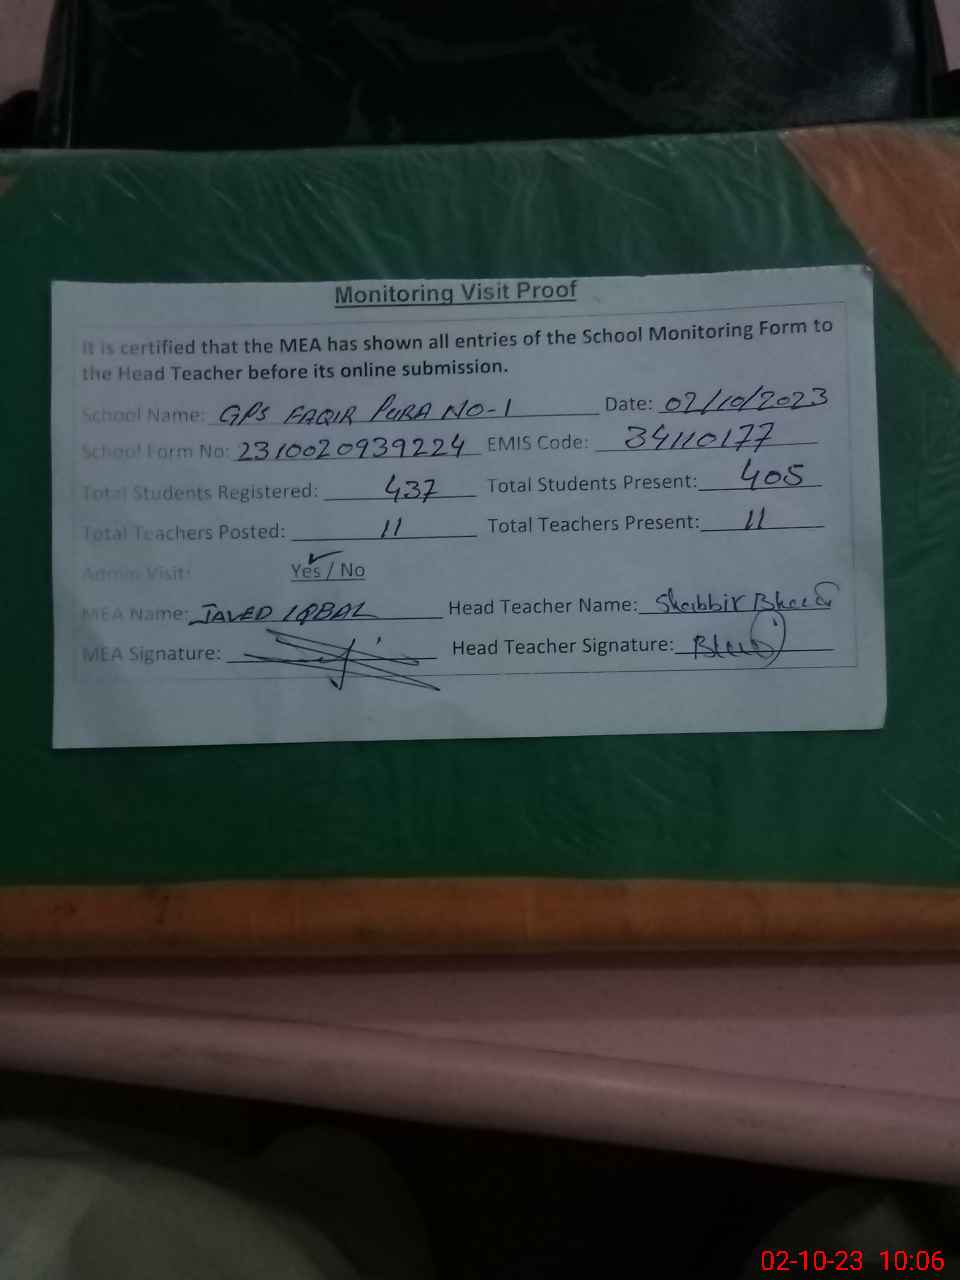 Monitoring Visit Proof
It is certified that the MEA has shown all entries of the School Monitoring Form to
the Head Teacher before its online submission.
School Name: GPS FAQIR PURA NO-1 Date: 02/10/2023
School Form No: 2310020939224 EMIS Code: 34110177
Total Students Registered: 437 Total Students Present: 405
Total Teachers Posted: 11 Total Teachers Present: 11
Admin Visit: Yes / No
MEA Name: JAVED IQBAL Head Teacher Name: Shabbir
MEA Signature: Head Teacher Signature:
02-10-23 10:06